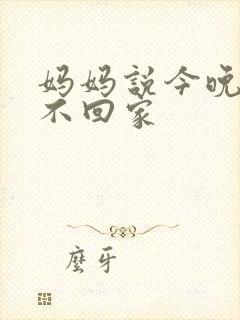 妈妈説今晚
不回家
麼牙